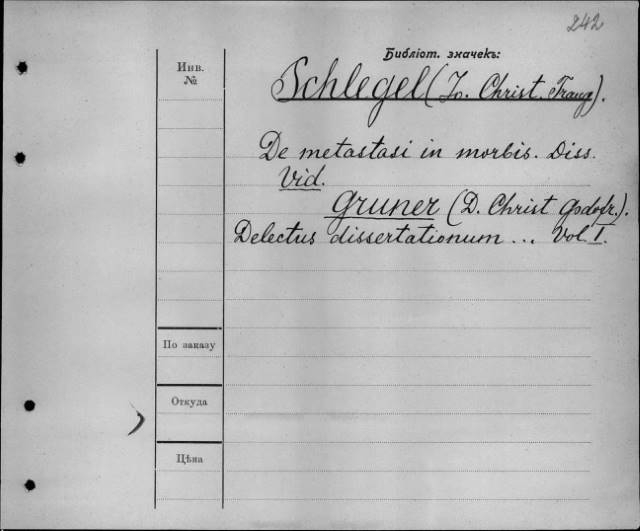 242
Библіот. значекъ:
Инв.
№
Schlegel (Jo. Christ. Traug).
De metastasi in morbis. Diss.
Vid.
Gruner (D. Christ Godofr.).
Delectus dissertationum ... Vol. I.
По заказу
Откуда
Цѣна